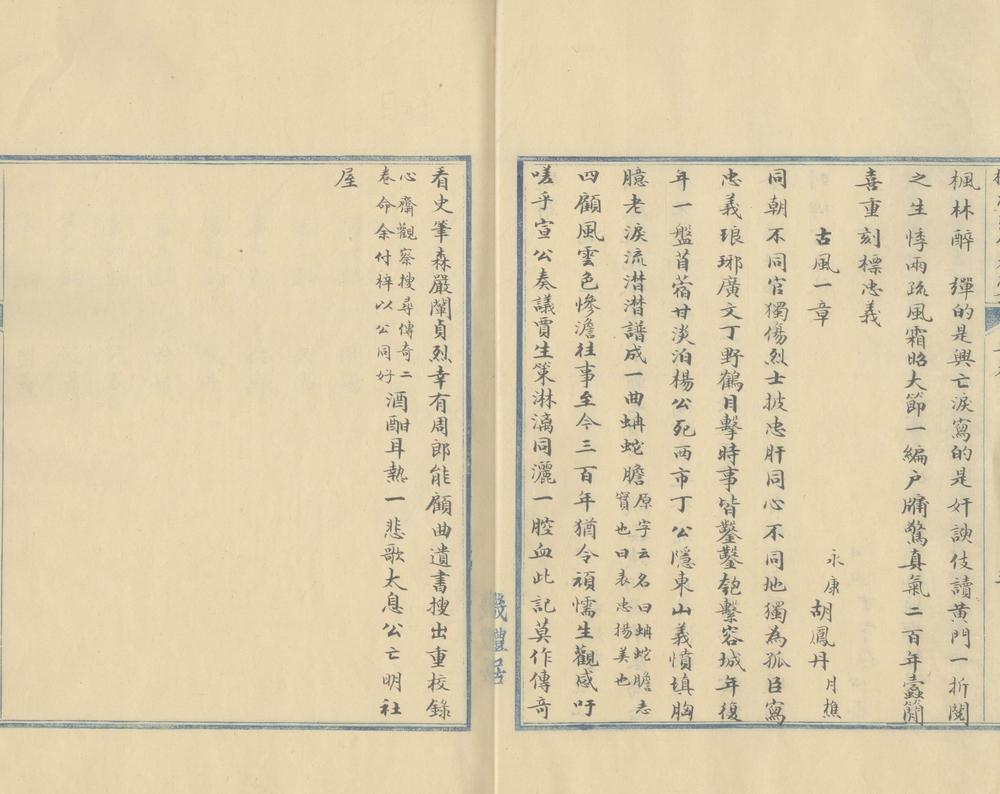 楓林醉　繟的是興亡淚寫的是奸諛伎讀黄門一折閱
之生悸雨疏風霜昭大節一編户牖驚真氣二百年蠹簡
喜重刻標忠義
古風一章
永康胡鳳丹月樵
同朝不同官獨傷烈士披忠肝同心不同地獨為孤臣寫
忠義琅琊廣文丁野鶴目擊時事皆鑿鑿匏繫容城年復
年一盤苜蓿甘淡泊楊公死西市丁公隱東山義憤填胸
臆老淚流潸潸譜成一曲蚺蛇膽原字云名曰蚺蛇膽志
寳也曰表忠揚美也
四顧風雲色慘澹往事至今三百年猶令頑懦生觀感吁
嗟乎宣公奏議賈生策淋漓同灑一腔血此記莫作傳奇
看史筆森嚴闡貞烈幸有周郎能顧曲遺書搜出重校錄
心齋觀察搜尋傳奇二
卷命余付梓以公同好
酒酣耳熱一悲歌太息公亡明社
屋